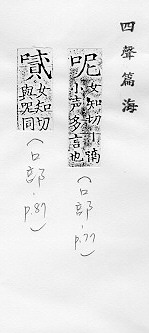 四聲篇海
呢 女知切丨諵
小多言也
(口部.p.77)
女知切
與呢同
(口部.p.87)